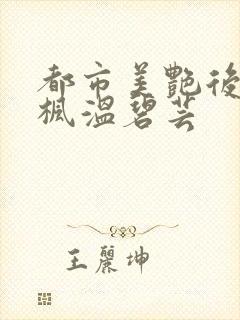 都市美艷後
楓溫碧芸
王麗坤